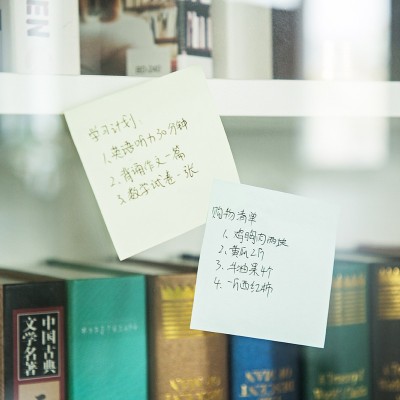 EN
学习计划
1.英语听力30分钟
2.背诵作文一篇
3.数学试卷一张
购物清单
1.鸡胸肉两块
2.黄瓜2个
3.牛油果4个
4.一斤西红柿
中国古典
文学名著